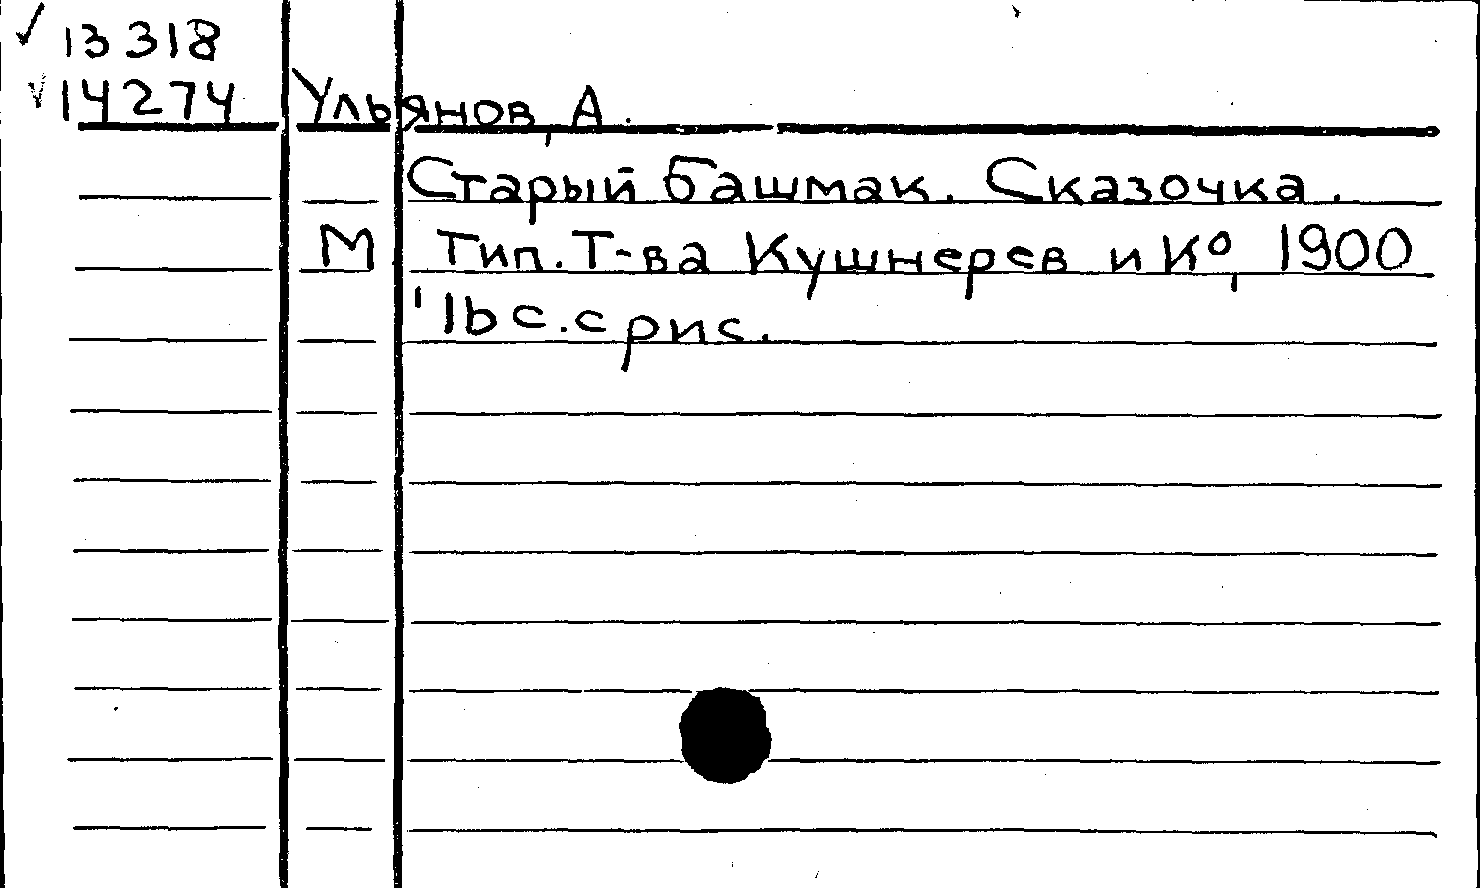 ✓ 13318
✓ 14274 Ульянов, А.
Старый башмак. Сказочка.
М Тип. Т-ва Кушнерев и Ко, 1900
16 с. с рис.